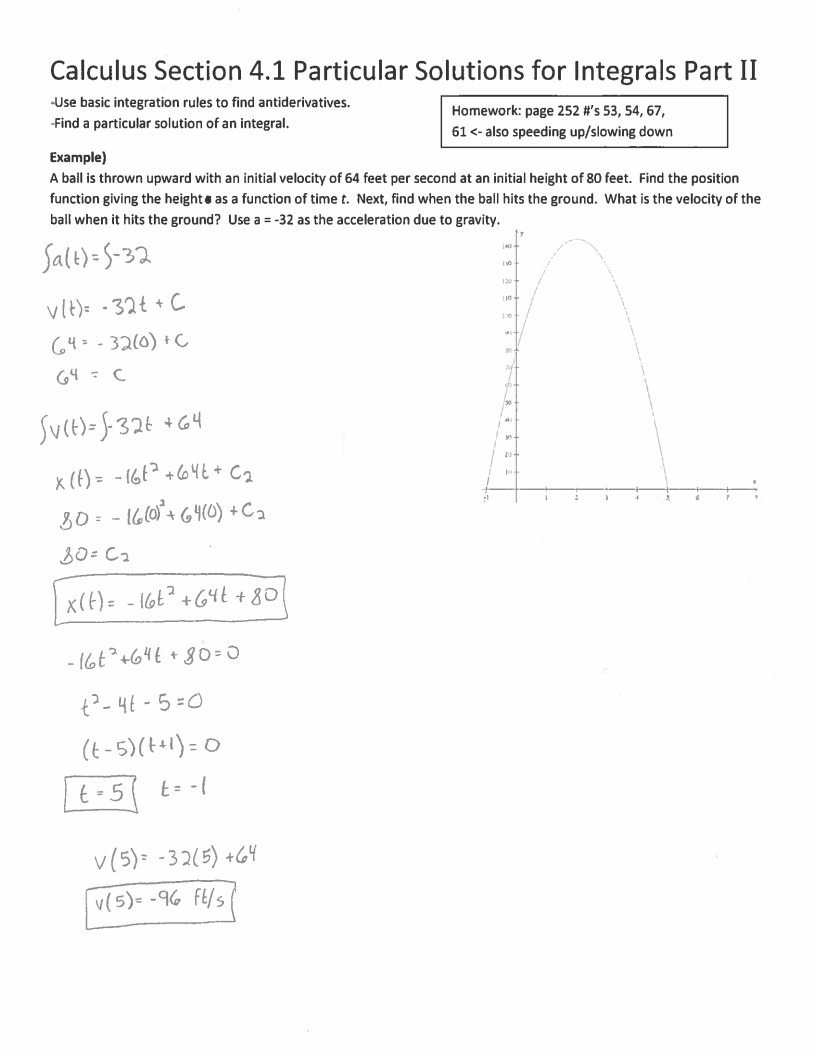 Calculus Section 4.1 Particular Solutions for Integrals Part II
-Use basic integration rules to find antiderivatives.
-Find a particular solution of an integral.
Homework: page 252 #'s 53, 54, 67,
61 <- also speeding up/slowing down
Example)
A ball is thrown upward with an initial velocity of 64 feet per second at an initial height of 80 feet. Find the position
function giving the height as a function of time t. Next, find when the ball hits the ground. What is the velocity of the
ball when it hits the ground? Use a = -32 as the acceleration due to gravity.
∫a(t)=∫-32
v(t)= -32t + C
64 = -32(0) + C
64 = C
∫v(t)=∫-32t +64
x(t)= -16t² +64t + C₂
80 = -16(0)²+ 64(0) + C₂
80= C₂
x(t)= -16t² +64t +80
-16t²+64t + 80=0
t²-4t-5=0
(t-5)(t+1)=0
t=5 t=-1
v(5)= -32(5) +64
v(5)= -96 ft/s
y
140
130
120
110
80
50
20
-1 1 2 3 4 5 6 7